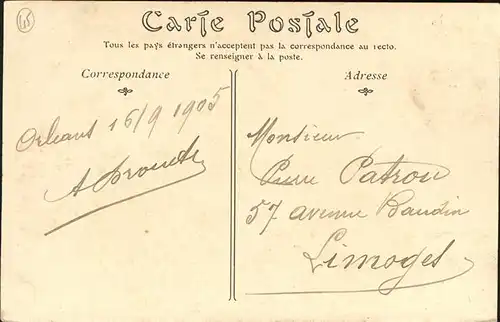 45
Carte Postale
Tous les pays étrangers n'acceptent pas la correspondance au recto.
Se renseigner à la poste.
Correspondance
Adresse
Orléans 16/9 1905
Monsieur
Pierre Patrou
57 avenue Baudin
Limoges